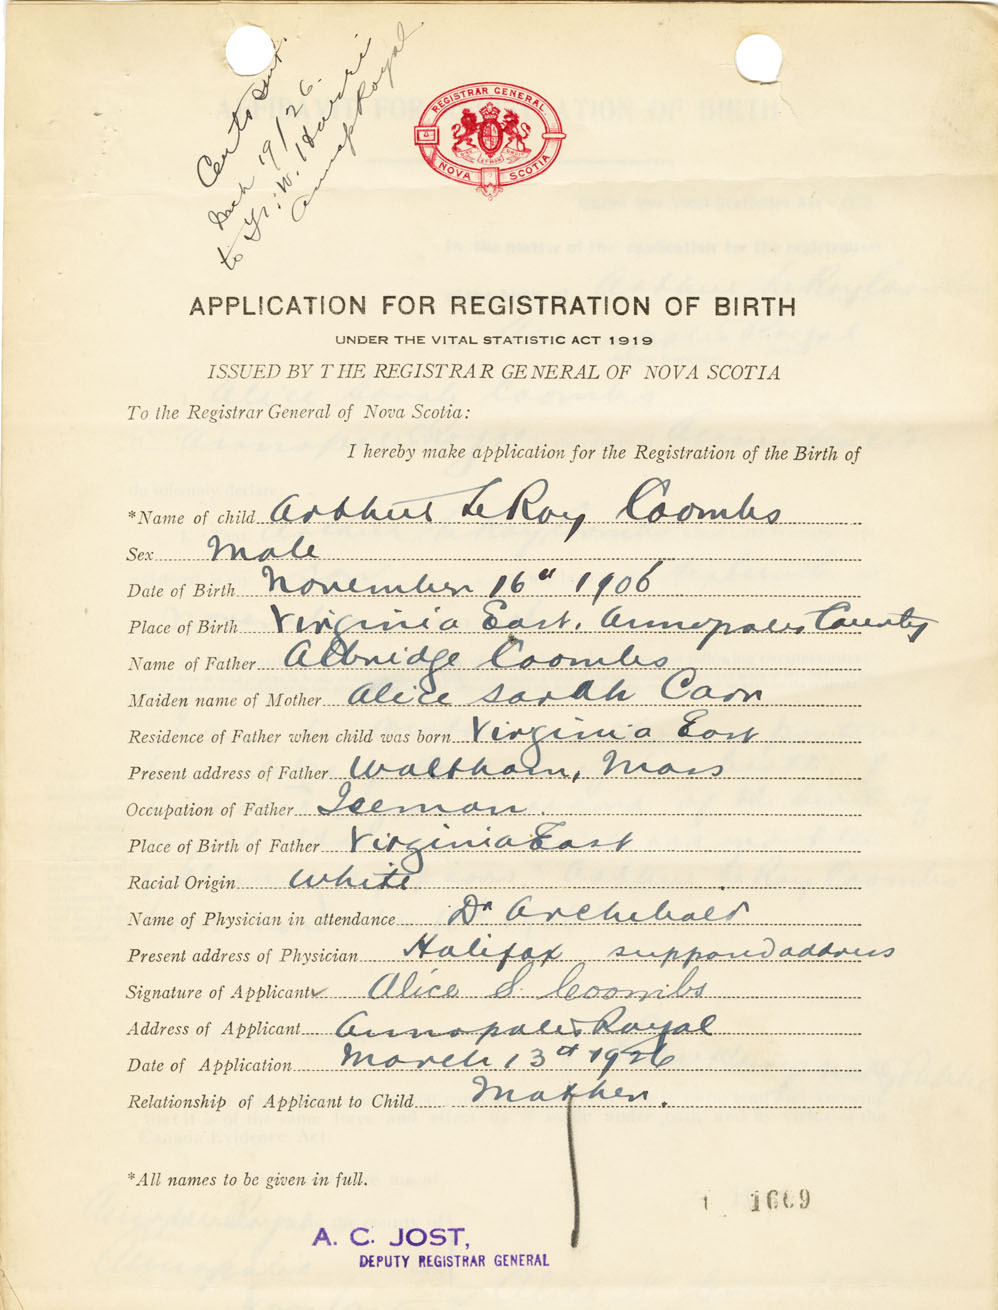 Cert sent.
Mch 19/26.
to W. Harris
Annap Royal
REGISTRAR GENERAL
NOVA SCOTIA
APPLICATION FOR REGISTRATION OF BIRTH
UNDER THE VITAL STATISTIC ACT 1919
ISSUED BY THE REGISTRAR GENERAL OF NOVA SCOTIA
To the Registrar General of Nova Scotia:
I hereby make application for the Registration of the Birth of
*Name of child Arthur LeRoy Coombs
Sex Male
Date of Birth November 16th 1906
Place of Birth Virginia East, Annapolis County
Name of Father Albridge Coombs
Maiden name of Mother Alice Sarah Carr
Residence of Father when child was born Virginia East
Present address of Father Waltham, Mass
Occupation of Father Iceman
Place of Birth of Father Virginia East
Racial Origin White
Name of Physician in attendance Dr Archibald
Present address of Physician Halifax supposed address
Signature of Applicant Alice S. Coombs
Address of Applicant Annapolis Royal
Date of Application March 13th 1926
Relationship of Applicant to Child Mother.
*All names to be given in full.
1669
A. C. JOST,
DEPUTY REGISTRAR GENERAL